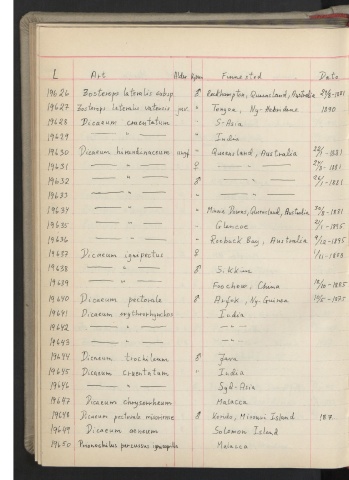 L Art Alder Kjønn Funnsted Date
19626 Zosterops lateralis subsp. ♂ Rockhampton, Queensland, Australia 1881
19627 Zosterops lateralis vatensis juv. " Tongoa, Ny-Hebridene 1890
19628 Dicaeum cruentatum " S-Asia
19629 — " — " India
19630 Dicaeum hirundinaceum ungf. " Queensland, Australia 22/1-1881
19631 — " — ♀ — " — 1881
19632 — " — ♂ — " — 1881
19633 — " — " — " —
19634 — " — " Queensland, Australia 30/8-1881
19635 — " — " Glencoe 21/1-1895
19636 — " — " Roebuck Bay, Australia 9/12-1895
19637 Dicaeum ignipectus ♀ 1/11-1873
19638 — " — ♂ Sikkim
19639 — " — Foochow, China 1885
19640 Dicaeum pectorale ♂ Arfak, Ny-Guinea 1875
19641 Dicaeum erythrorhynchos India
19642 — " — — " —
19643 — " — — " —
19644 Dicaeum trochileum ♂ Java
19645 Dicaeum cruentatum " India
19646 — " — Syd-Asia
19647 Dicaeum chrysorrheum Malacca
19648 Dicaeum pectorale ♂ Island 187
19649 Dicaeum aeneum Solomon Island
19650 Prionochilus percussus ignicapilla Malacca